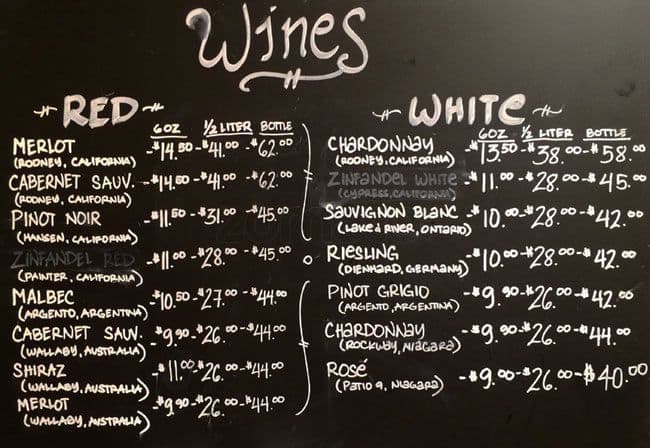 Wines
RED
6oz ½ LITER BOTTLE
MERLOT -$14.50-$41.00-$62.00
(RODNEY, CALIFORNIA)
CABERNET SAUV. -$14.50-$41.00-$62.00
(RODNEY, CALIFORNIA)
PINOT NOIR -$11.50-$31.00-$45.00
(HANSEN, CALIFORNIA)
ZINFANDEL RED -$11.00-$28.00-$45.00
(PAINTER, CALIFORNIA)
MALBEC -$10.50-$27.00-$44.00
(ARGENTO, ARGENTINA)
CABERNET SAUV. -$9.90-$26.00-$44.00
(WALLABY, AUSTRALIA)
SHIRAZ -$11.00-$26.00-$44.00
(WALLABY, AUSTRALIA)
MERLOT -$9.90-$26.00-$44.00
(WALLABY, AUSTRALIA)
WHITE
6OZ ½ LITER BOTTLE
CHARDONNAY -$13.50-$38.00-$58.00
(RODNEY, CALIFORNIA)
ZINFANDEL WHITE -$11.00-$28.00-$45.00
(CYPRESS, CALIFORNIA)
SAUVIGNON BLANC -$10.00-$28.00-$42.00
(LAKE & RIVER, ONTARIO)
RIESLING -$10.00-$28.00-$42.00
(DIENHARD, GERMANY)
PINOT GRIGIO -$9.90-$26.00-$42.00
(ARGENTO, ARGENTINA)
CHARDONNAY -$9.90-$26.00-$44.00
(ROCKWAY, NIAGARA)
ROSÉ -$9.00-$26.00-$40.00
(PATIO 9, NIAGARA)